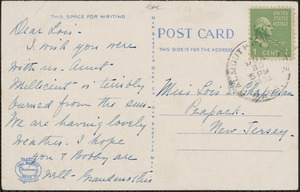 THIS SPACE FOR WRITING
POST CARD
THIS SIDE IS FOR THE ADDRESS
Dear Lois -
I wish you were
with us. Aunt
Millicent is terribly
burned from the sun.
We are having lovely
weather. I hope
you & Bobby are
well - Grandmother
1 CENT 1
Miss Lois
Peapack
New Jersey.